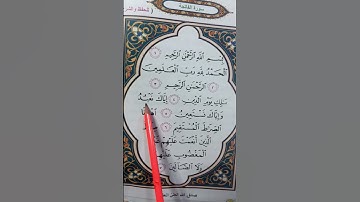 سورة الفاتحة
بِسْمِ ٱللَّهِ ٱلرَّحْمَٰنِ ٱلرَّحِيمِ ١
ٱلْحَمْدُ لِلَّهِ رَبِّ ٱلْعَٰلَمِينَ
٢ ٱلرَّحْمَٰنِ ٱلرَّحِيمِ ٣
مَٰلِكِ يَوْمِ ٱلدِّينِ ٤ إِيَّاكَ نَعْبُدُ
وَإِيَّاكَ نَسْتَعِينُ ٥ ٱهْدِنَا
ٱلصِّرَٰطَ ٱلْمُسْتَقِيمَ ٦
ٱلَّذِينَ أَنْعَمْتَ عَلَيْهِمْ
ٱلْمَغْضُوبِ عَلَيْهِمْ
وَلَا ٱلضَّآلِّينَ
صدق الله العلي